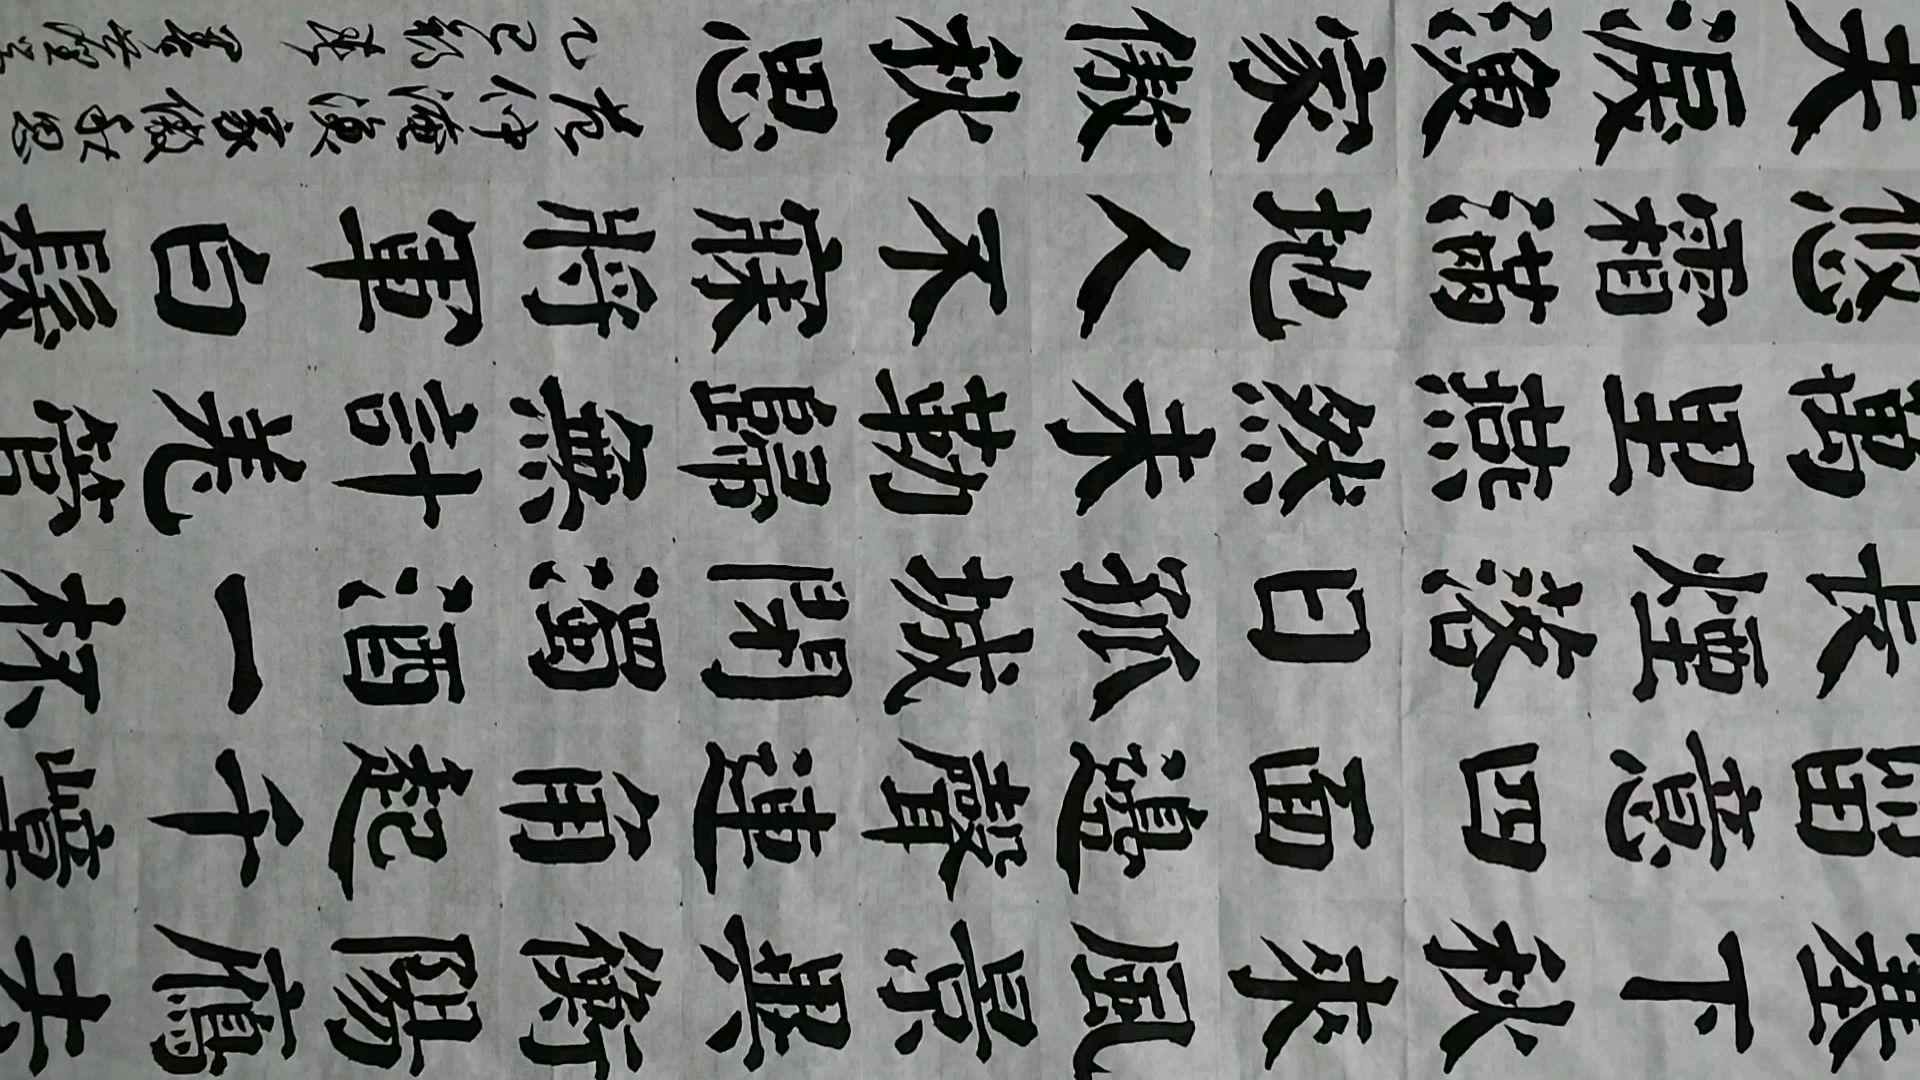 塞下秋來風景異衡陽鴈去
留意四面邊聲連角起千嶂
長煙落日孤城閉濁酒一杯
萬里燕然未勒歸無計羌管
悠霜滿地人不寐將軍白髮
夫淚漁家傲秋思
范仲淹漁家傲秋思
乙巳初